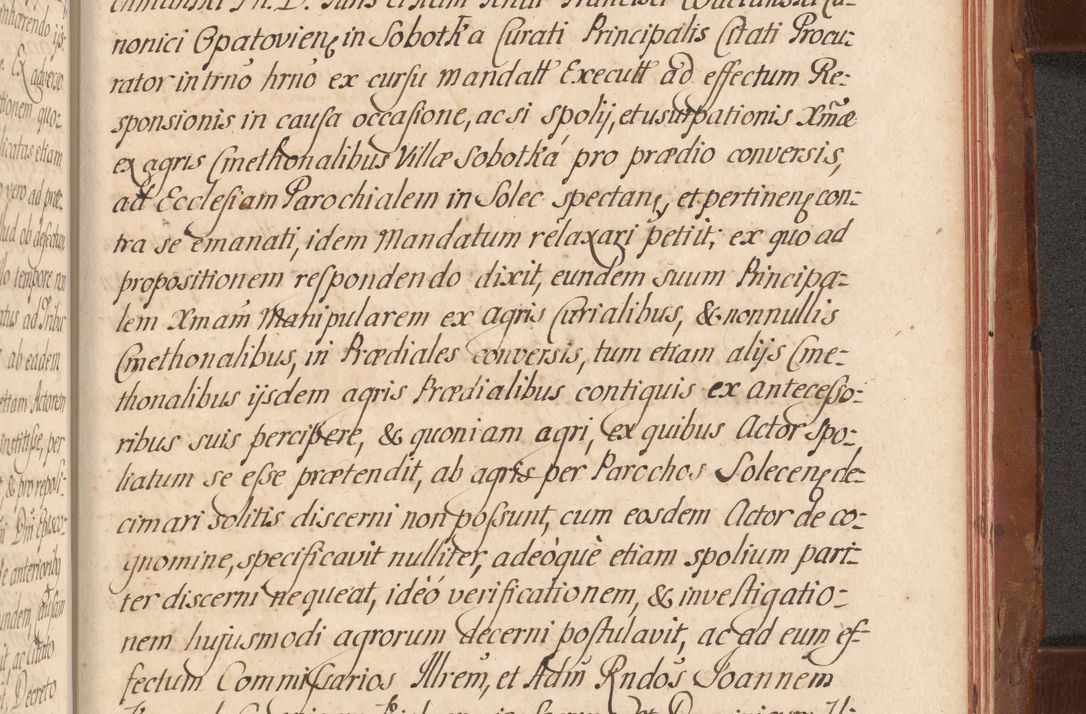 nonici Opatovien: in Sobotka Curati Principalis Citati Procu:
rator in trno hrno ex cursu mandatt Executt ad effectum Re:
sponsionis in causa occasione, ac si spolij, et usurpationis Xmæ
ex agris Cmethonalibus Villæ Sobotká pro prædio conversis,
ad Ecclesiam Parochialem in Solec spectan:, et pertinen: con:
tra se emanati, idem Mandatum relaxari petiit; ex quo ad
propositionem respondendo dixit, eundem suum Principa:
lem Xmam Manipularem ex agris Curialibus, & nonnullis
Cmethonalibus, in Prædiales conversis, tum etiam alijs Cme:
thonalibus ijsdem agris Prædialibus contiguis ex antecesso:
ribus suis percipere, & quoniam agri, ex quibus Actor spo:
liatum se esse prætendit, ab agris per Parochos Solecen: de:
cimari solitis discerni non possunt, cum eosdem Actor de co:
gnomine, specificavit nulliter, adeòquè etiam spolium pari:
ter discerni nequeat, idèó verificationem, & investigatio:
nem hujusmodi agrorum decerni postulavit, ac ad eum ef:
fectum Commissarios Illrem, et Adm Rndos Joannem